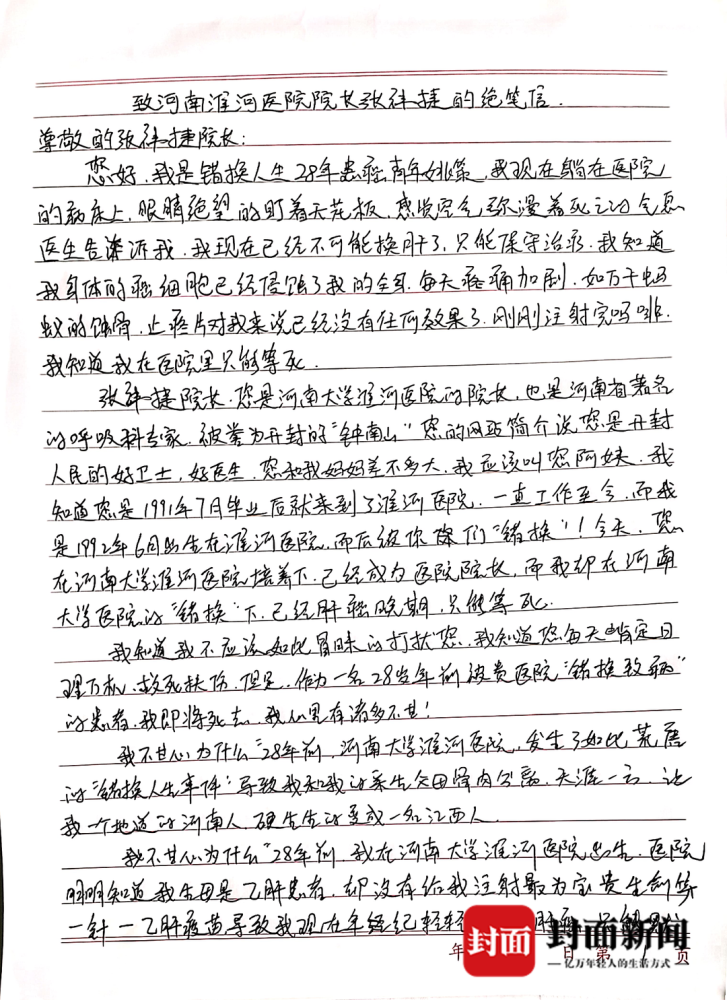 致河南淮河医院院长张祥捷的绝笔信.
尊敬的张祥捷院长:
您好.我是错换人生28年患癌青年姚策,我现在躺在医院
的病床上,眼睛绝望的盯着天花板,感觉空气弥漫着死亡的气息
医生告诉我.我现在已经不可能换肝了,只能保守治疗.我知道
我身体的癌细胞已经侵蚀了我的全身.每天疼痛加剧.如万千蚂
蚁的蚀骨.止疼片对我来说已经没有任何效果了.刚刚注射完吗啡.
我知道我在医院里只能等死.
张祥捷院长.您是河南大学淮河医院的院长,也是河南省著名
的呼吸科专家.被誉为开封的“钟南山”您的网站简介说您是开封
人民的好卫士,好医生.您和我妈妈差不多大.我应该叫您阿姨.我
知道您是1991年7月毕业后就来到了淮河医院.一直工作至今.而我
是1992年6月出生在淮河医院.而后被你院们“错换”!今天.您
在河南大学淮河医院培养下.已经成为医院院长,而我却在河南
大学医院的“错换”下.已经肝癌晚期.只能等死.
我知道我不应该如此冒昧的打扰您.我知道您每天肯定日
理万机.救死扶伤.但是.作为一名28岁年前被贵医院“错换致病”
的患者.我即将死去.我心里有诸多不甘!
我不甘心为什么“28年前.河南大学淮河医院,发生了如此荒唐
的“错换人生事件”导致我和我的亲生父母骨肉分离.天涯一方.让
我一个地道的河南人.硬生生的变成一名江西人.
我不甘心为什么“28年前.我在河南大学淮河医院出生.医院
明明知道我生母是乙肝患者.却没有给我注射最为宝贵生命第
一针一乙肝疫苗导致我现在年纪轻轻
年 日 第 页
封面 封面新闻
亿万年轻人的生活方式